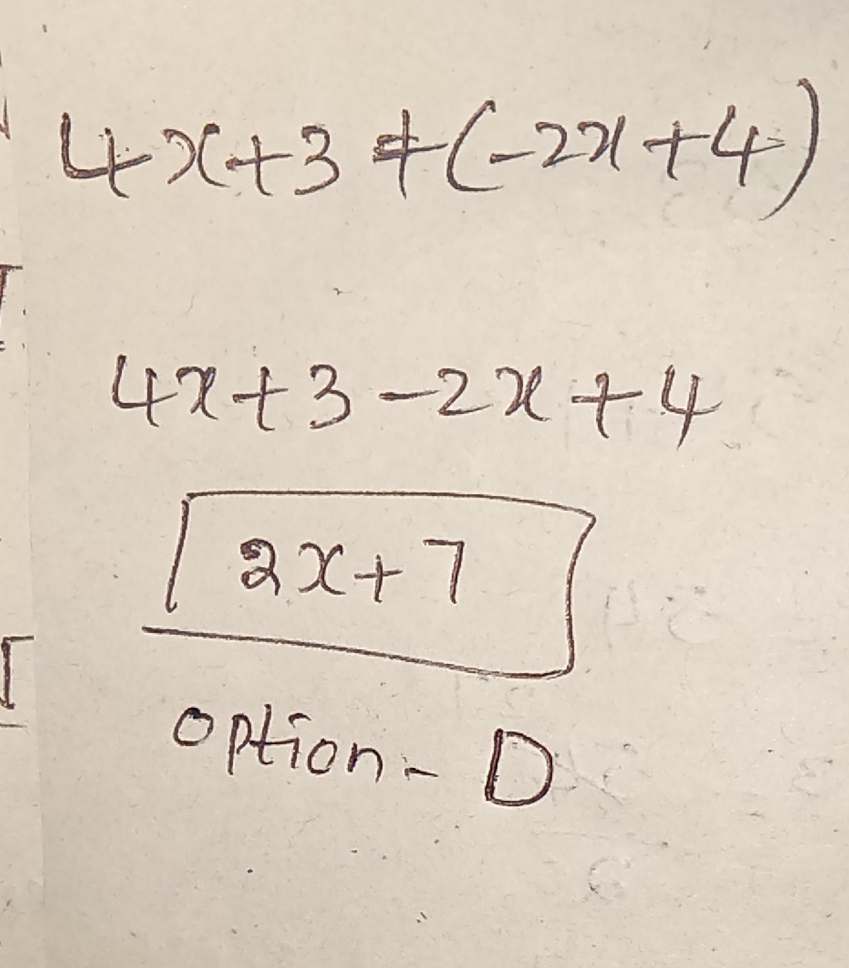 4x+3+(-2x+4)
4x+3-2x+4
2x+7
option- D